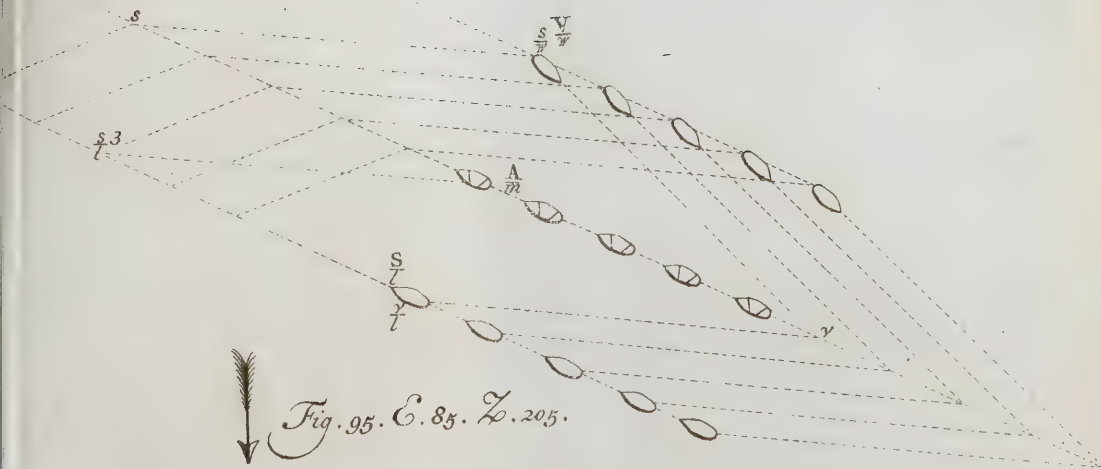 s
V
s
s 3
l
A
m
S
l
γ
l
γ
Fig. 95. E. 85. Z. 205.